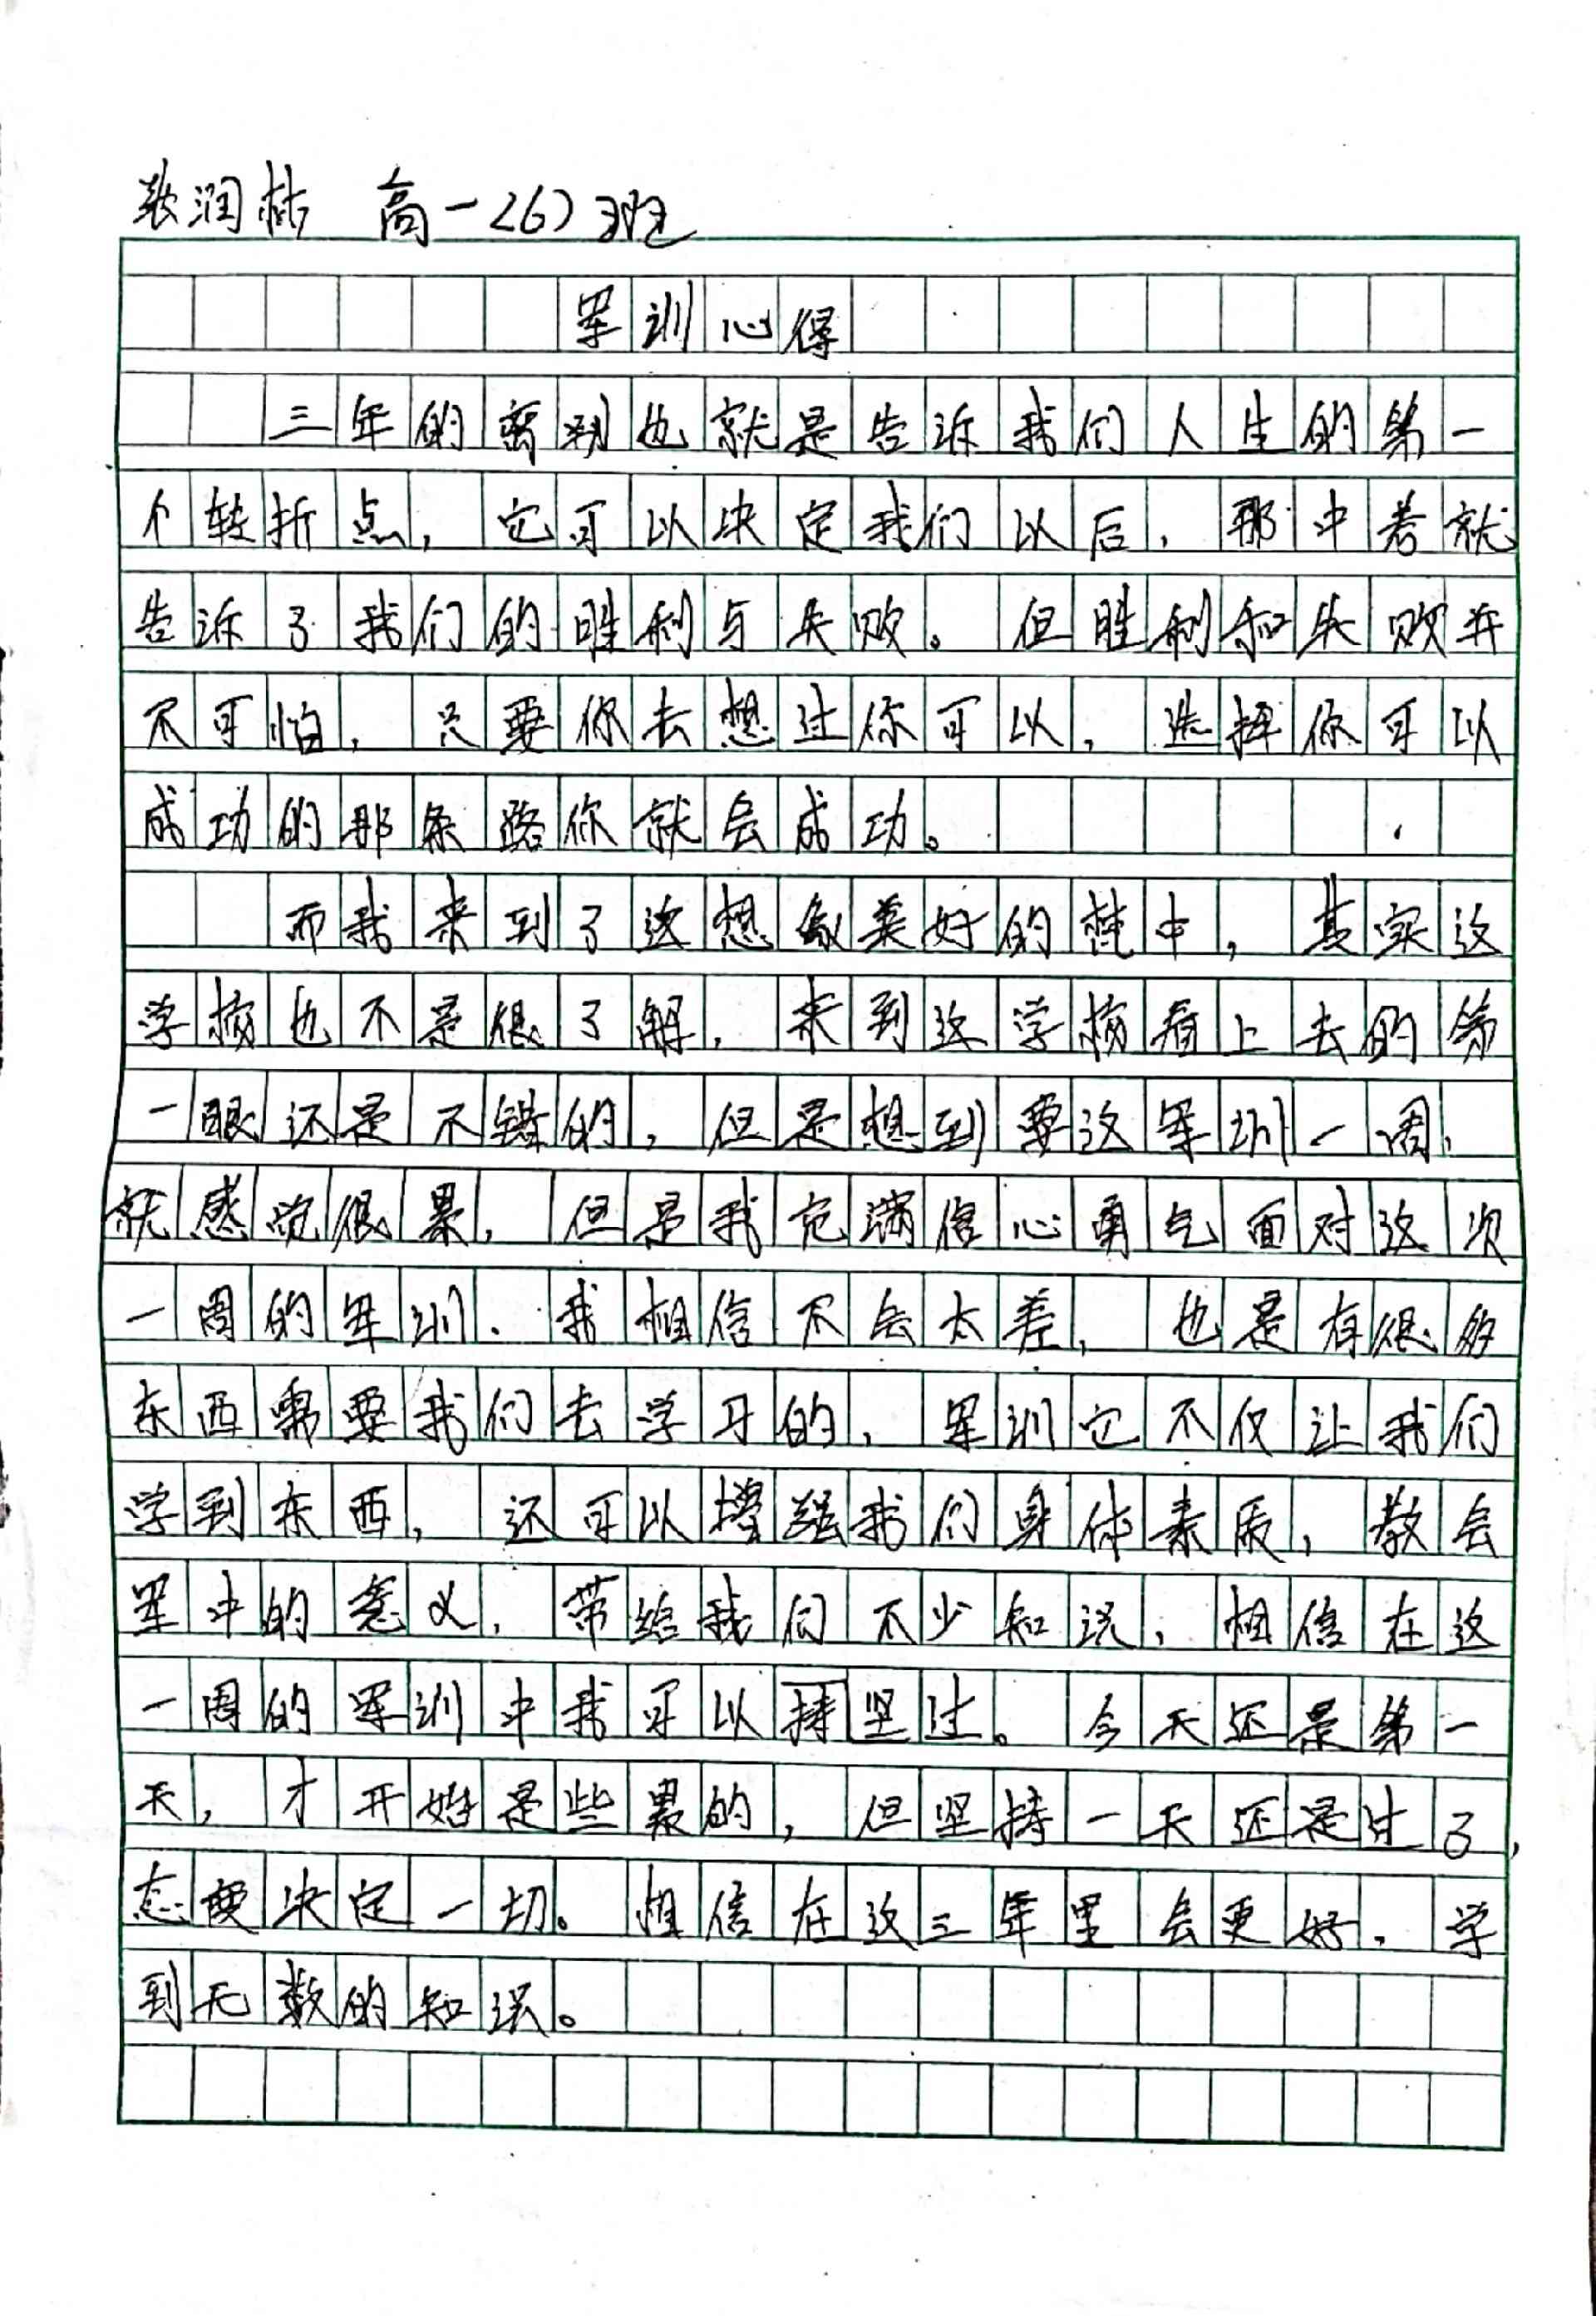 张润 高一(6)班
军训心得
三年的离别也就是告诉我们人生的第一
个转折点，它可以决定我们以后，那中考就
告诉了我们的胜利与失败。但胜利和失败并
不可怕，只要你去想过你可以，选择你可以
成功的那条路你就会成功。
而我来到了这想象美好的楚中，其实这
学校也不是很了解，来到这学校看上去的第
一眼还是不错的，但是想到要这军训一周，
就感觉很累，但是我充满信心勇气面对这次
一周的军训．我相信不会太差，也是有很多
东西需要我们去学习的，军训它不仅让我们
学到东西，还可以增强我们身体素质，教会
军中的意义，带给我们不少知识，相信在这
一周的军训中我可以持坚过。今天还是第一
天，才开始是些累的，但坚持一天还是过了，
态度决定一切。相信在这三年里会更好，学
到无数的知识。